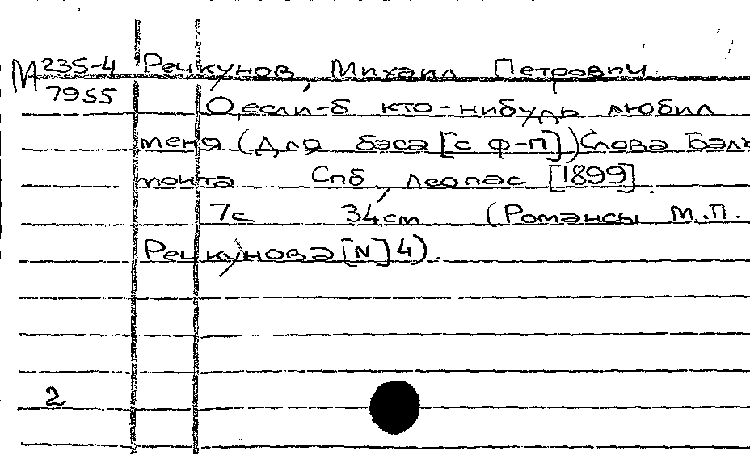 М 235-4 Речкунов, Михаил Петрович.
7955 О, если-б кто-нибудь любил
меня (Для баса [с ф-п]) Слова Баль
монта Спб, Леопас [1899]
7с 34см (Романсы М.П.
Речкунова [N] 4).
2